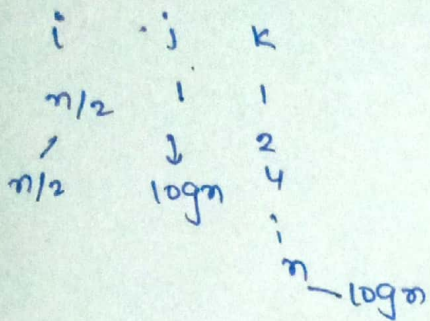 i j k
n/2 1 1
2
n/2 logn 4
n logn